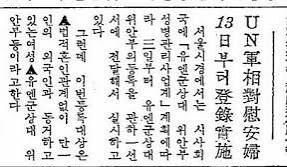 UN軍相對慰安婦
13日부터登錄實施
서울시경에서는 시사회
국에 「유엔군상대 위안부
성병관리사업계」계획에따
라 一三일부터 유엔군상대
위안부의등록을 관하一선
서에 전달해서 실시하고
있다
그런데 이번등록대상은
▲법적혼인관계없이 단一
인의 외국인과 동거하고
있는여성▲유엔군상대 위
안부등이라고한다